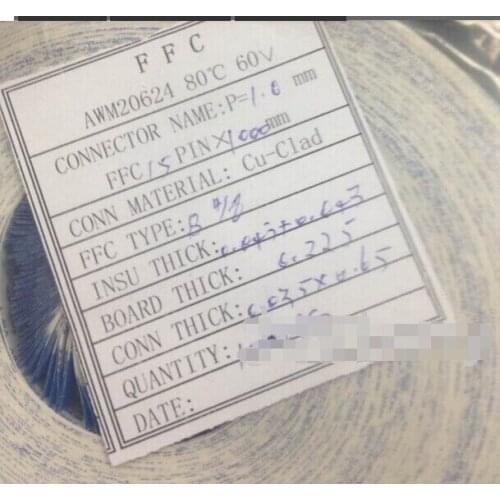 FFC
AWM20624 80℃ 60V
CONNECTOR NAME:P=1.0 mm
FFC 15 PIN X 1000mm
CONN MATERIAL: Cu-Clad
FFC TYPE: B
INSU THICK: 0.043+0.043
BOARD THICK: 0.225
CONN THICK: 0.035×0.65
QUANTITY:
DATE: